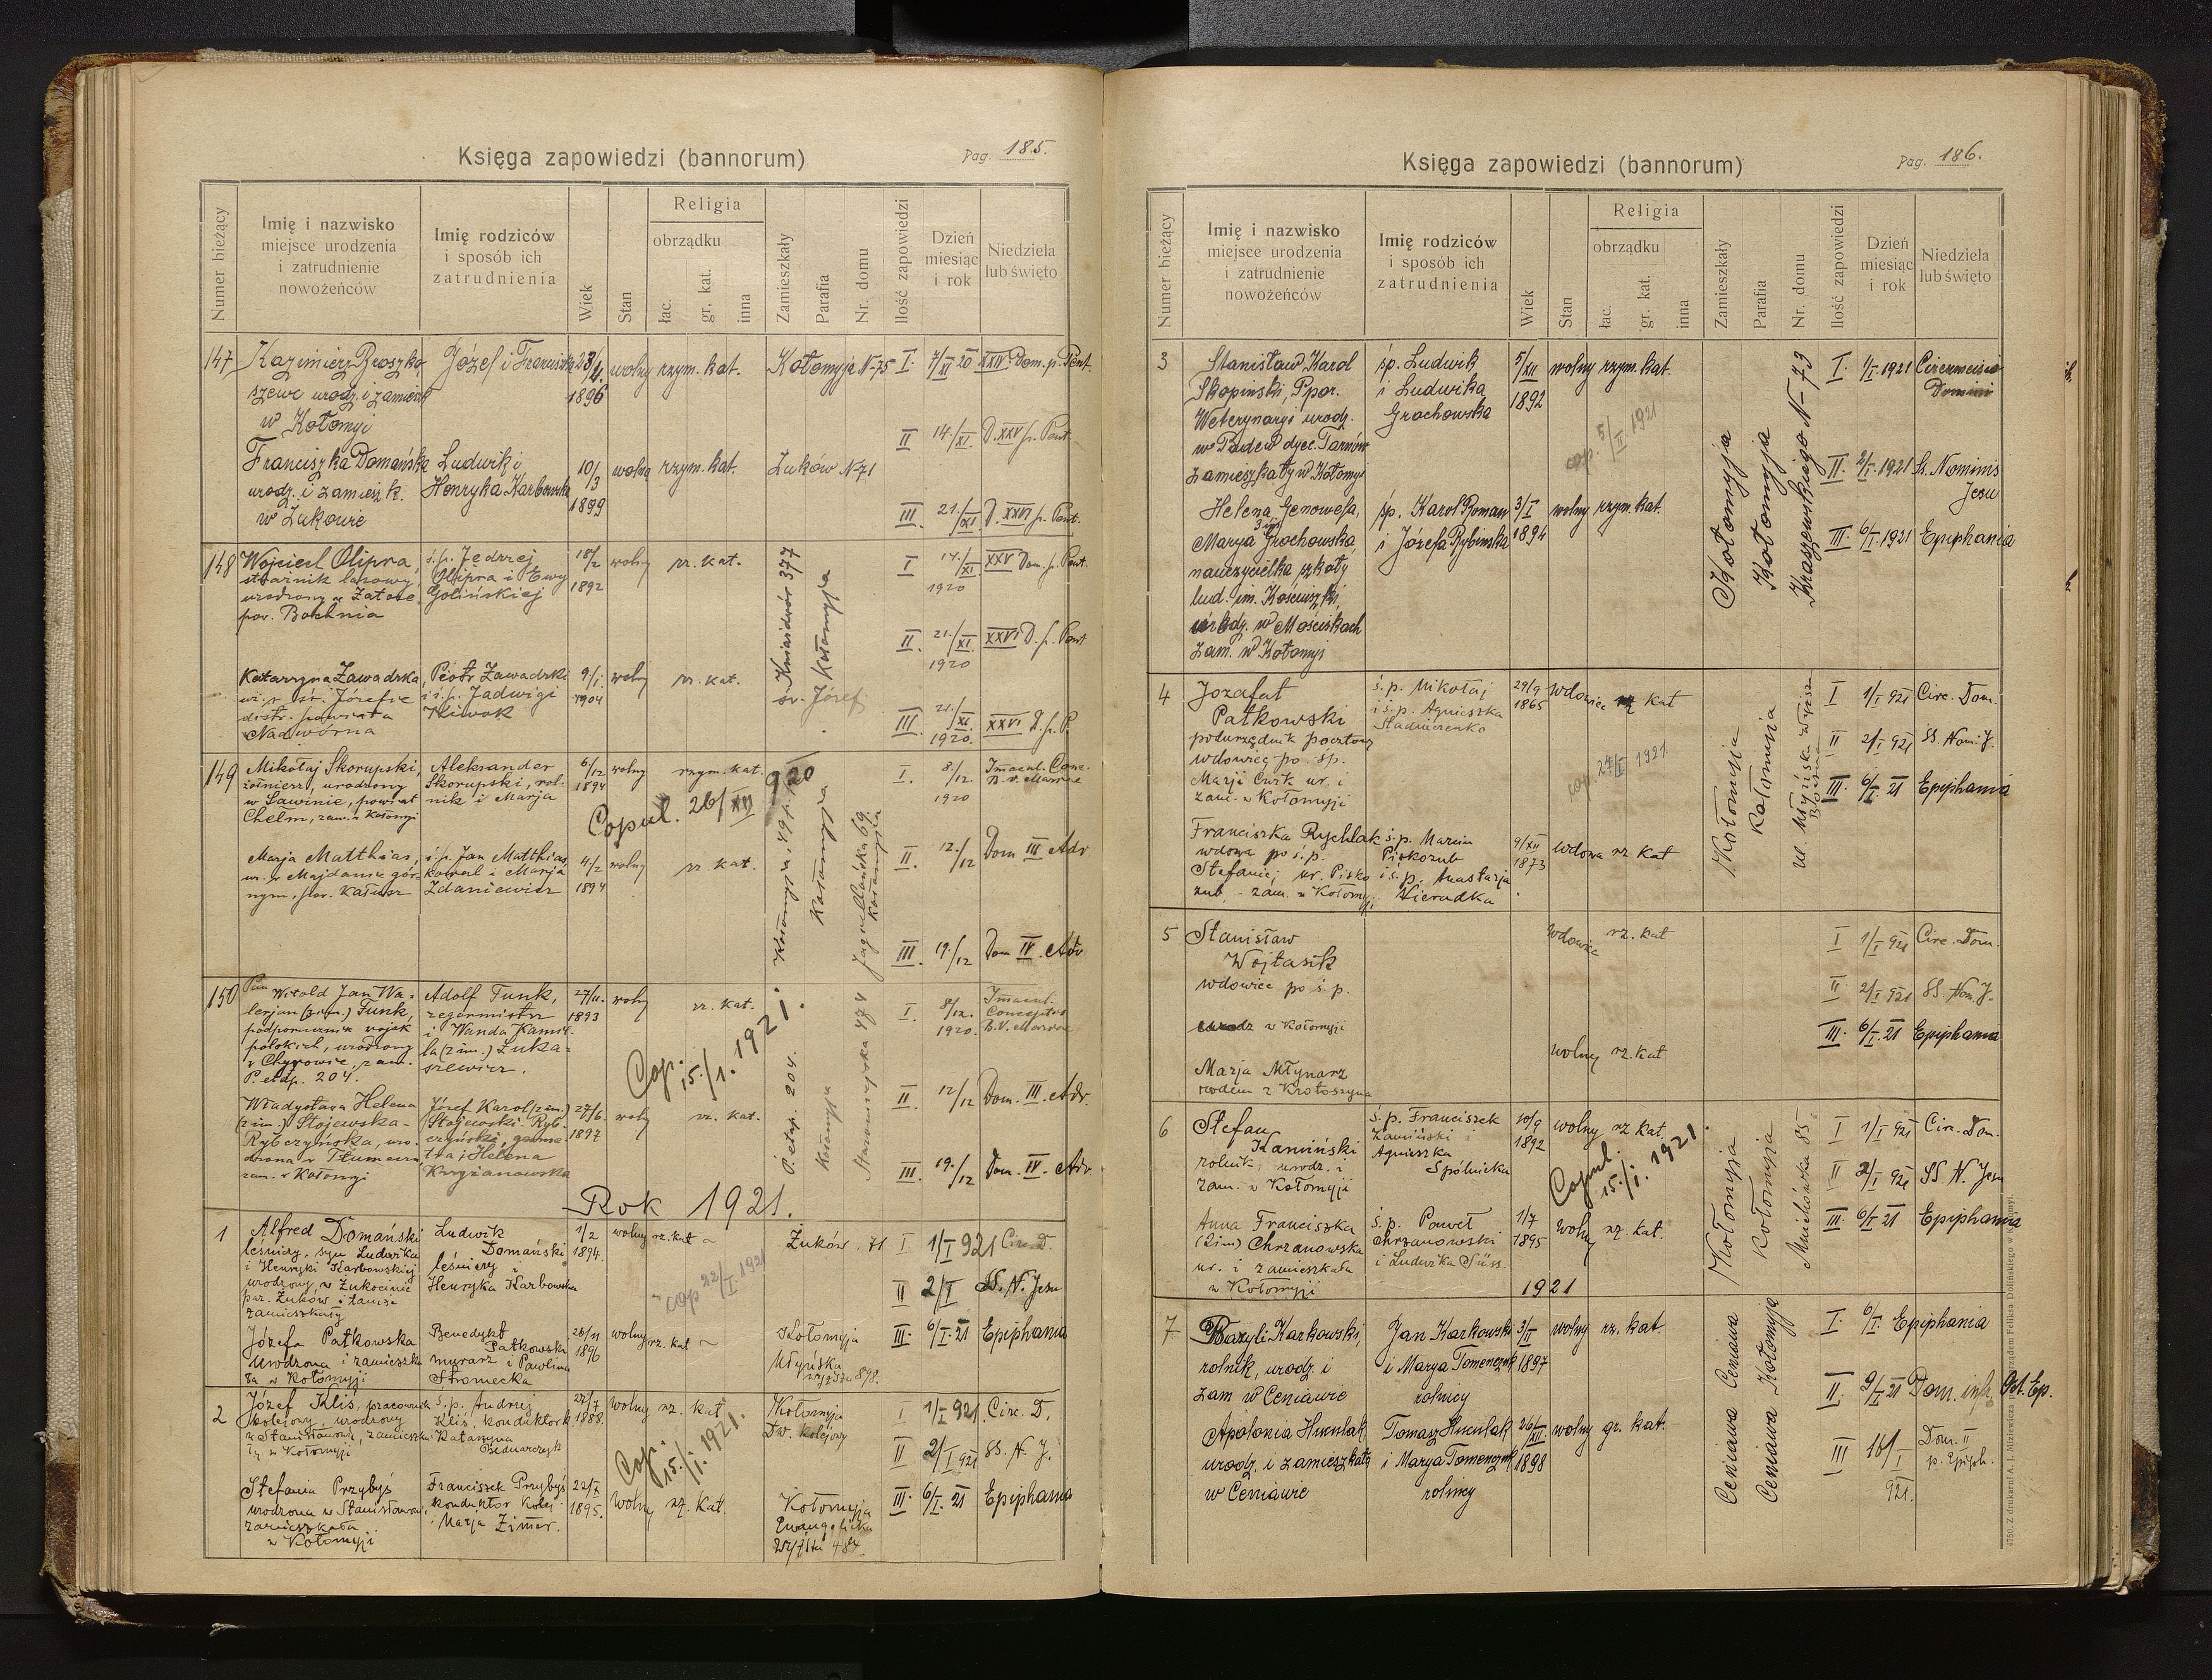 Księga zapowiedzi (bannorum)
Pag. 185.
Numer bieżący
Imię i nazwisko
miejsce urodzenia
i zatrudnienie
nowożeńców
Imię rodziców
i sposób ich
zatrudnienia
Wiek
Stan
Religia
obrządku
łac.
gr. kat.
inna
Zamieszkały
Parafia
Nr. domu
Ilość zapowiedzi
Dzień
miesiąc
i rok
Niedziela
lub święto
147
Kazimierz
szewc urodz. i zamieszk
w Kołomyi
Józef i Franciszka
1896
wolny rzym. kat.
Kołomyja N-75
I. 7/XI 20 XXIV Dom. p. Pent.
II 14./XI. D. XXV p. Pent.
Franciszka Domańska
urodz. i zamieszk.
w Żukowie
Ludwik i
Henryka Karbowska
10/3
1899
wolna rzym. kat.
Żuków N-71
III. 21./XI. D. XXVI p. Pent.
148
Wojciech Olipra,
urodzony w
pow. Bochnia
ś.p. Jędrzej
Olipra i Ewy
Golińskiej
18/2
1892
wolny rz. kat.
Kniaźdwór 377
Kołomyja
św. Józef
I 14./XI 1920 XXV Dom. p. Pent.
II. 21./XI. 1920 XXVI D. p. Pent
III. 21./XI. 1920. XXVI D. p. P.
Katarzyna Zawadzka,
ur. w św. Józefie
powiatu
Nadwórna
Piotr Zawadzki
i ś.p. Jadwigi
Kliwok
9/I.
1904
wolny rz. kat.
149
Mikołaj Skorupski,
żołnierz, urodzony
w Sawinie, powiat
Chełm, zam. w Kołomyi
Aleksander
Skorupski, rol-
nik i Marja
6/12
1894
wolny rzym. kat.
Copul. 26/XII 920
Kołomyja, 49 p.
Kołomyja
Jagiellońska 69.
Kołomyja
I. 8/12. 1920
Imacul. Conc.
B. V. Mariae
II. 12./12 Dom III Adv
III. 19./12 Dom IV. Adv
Marja Matthias,
ur. w Majdanie gór-
nym, pow. Kałusz
ś.p. Jan Matthias,
kowal i Marja
Zdaniewicz
4./2
1894
wolny rz kat.
150
Pan Witold Jan Wa-
lerjan (3 im.) Funk,
podporucznik wojsk
polskich, urodzony
w Chyrowie, zam.
P. etap. 204.
Adolf Funk,
zegarmistrz
i Wanda Kamil-
la (2 im.) Łuka-
szewicz.
27/11.
1893
wolny rz. kat.
Cop. 15./1. 1921.
P. etap. 204.
Kołomyja
I 8/12. 1920.
Imacul.
Conceptio
B. V. Mariae
II 12/12 Dom. III. Adv.
III. 19./12 Dom. IV. Adv
Władysława Helena
(2 im.) Stojewska-
Rybczyńska, uro-
dzona w Tłumaczu
zam. w Kołomyi
Józef Karol (2 im.)
Stojewski-Ryb-
czyński,
i Helena
Krzyżanowska
27/6.
1897
wolny rz. kat.
Rok 1921.
1
Alfred Domański
leśniczy, syn Ludwika
i Henryki Karbowskiej
urodzony w Żukocinie
par. Żuków i tamże
zamieszkały
Ludwik
Domański
leśniczy i
Henryka Karbowska
1/2
1894.
wolny rz. kat
cop 22/I. 1921
Żuków. 71
I 1/I 921 Circ. D.
II 2/I SS. N. Jesu
III. 6/I. 21 Epiphania
Józefa Patkowska
urodzona i zamieszka
ła w Kołomyji
Benedykt
Patkowski
murarz i Paulina
Stromecka
1896
wolny rz. kat
Kołomyja
Młyńska
wyższa 878.
2
Józef Kliś, pracownik
kolejowy, urodzony
w Stanisławowie, zamieszka
ły w Kołomyji
ś.p. Andrzej
Kliś, konduktor k
Katarzyna
Bednarczyk
1888.
wolny rz. kat
Cop. 15./I. 1921.
Kołomyja
Dw. kolejowy
I 1/I 921. Circ. D.
II 2/I 921 SS. N. J.
III. 6/I. 21 Epiphania
Stefania Przybyś
urodzona w Stanisławowie,
zamieszkała
w Kołomyji
Franciszek Przybyś
konduktor kolej.
i Marja Zimer.
22/7
1895.
wolny rz. kat.
Kołomyja
Ewangelicka
wyższa
Księga zapowiedzi (bannorum)
Pag. 186.
Numer bieżący
Imię i nazwisko
miejsce urodzenia
i zatrudnienie
nowożeńców
Imię rodziców
i sposób ich
zatrudnienia
Wiek
Stan
Religia
obrządku
łac.
gr. kat.
inna
Zamieszkały
Parafia
Nr. domu
Ilość zapowiedzi
Dzień
miesiąc
i rok
Niedziela
lub święto
3
Stanisław Karol
Skopiński, Ppor.
Weterynaryi urodz.
w Padew dyec. Tarnów
zamieszkały w Kołomyi
śp. Ludwik
i Ludwika
Grochowska
5/XII
1892
wolny rzym. kat.
cop. 5/II 1921
Kołomyja
Kołomyja
Kraszewskiego N-73
I. 1/I. 1921 Circumcisio
Domini
II. 2/I. 1921 Ss. Nominis
Jesu
III. 6/I. 1921 Epiphania
Helena, Genowefa,
3 im
Marya Grochowska,
nauczycielka szkoły
lud. im. Kościuszki,
urodz. w Mościskach
zam. w Kołomyi
śp. Karol Roman
i Józefa Rybińska
3/I
1894
wolny rzym. kat.
4
Jozafat
Patkowski
podurzędnik pocztowy
wdowiec po śp.
Marji Ćwik ur. i
zam. w Kołomyji
ś.p. Mikołaj
i ś.p. Agnieszka
29/9
1865
wdowiec rz kat
cop. 27/II 1921.
Kołomyja
Kołomyja
ul. Młyńska wyższa
I 1/I 921 Circ. Dom.
II 2/I 921 SS. Nom. J.
III. 6/I. 21 Epiphania
Franciszka Rychlak
wdowa po ś.p.
Stefanie, ur. Pisko
zub - zam. w Kołomyji.
ś.p. Marcin
Piskozub
i ś.p. Anastazja
Nieradka
9/XII
1873
wdowa rz kat
5
Stanisław
Wojtasik
wdowiec po ś.p.
urodz w Kołomyji
wdowiec rz. kat
I 1/I 921 Circ. Dom.
II 2/I 921 SS. Nom J.
III. 6/I. 21 Epiphania
Marja Młynarz
rodem z Krotoszyna
wolny rz. kat
6
Stefan
Kamiński
rolnik, urodz. i
zam. w Kołomyji
ś.p. Franciszek
Kamiński i
Agnieszka
Spólnicka
10/9
1892
wolny rz kat.
Copul. 15./I. 1921.
Kołomyja
Kołomyja
I 1/I 921 Circ. Dom.
II 2/I 921 SS. N. Jesu
III. 6/I 21 Epiphania
Anna Franciszka
(2 im) Chrzanowska
ur. i zamieszkała
w Kołomyji
ś.p. Paweł
Chrzanowski
i Ludwika Süss.
1/7
1895
wolny rz. kat.
1921
7
Bazyli Karkowski,
rolnik, urodz. i
zam w Ceniawie
Jan Karkowski
i Marya Tomenczuk
rolnicy
3/II
1897
wolny rz. kat.
Ceniawa Ceniawa
Ceniawa Kołomyja
I. 6/I. Epiphania
II. 9/I 21 Dom. infr. Oct. Ep.
III 16/I 921.
Dom. II
p. Epiph.
Apolonia Huculak
urodz. i zamieszkała
w Ceniawie
Tomasz Huculak
i Marya Tomenczuk
rolnicy
26/XII
1898
wolny gr. kat.
4750. Z drukarni A. J. Miziewicza pod zarządem Feliksa Dolińskiego w Kołomyi.